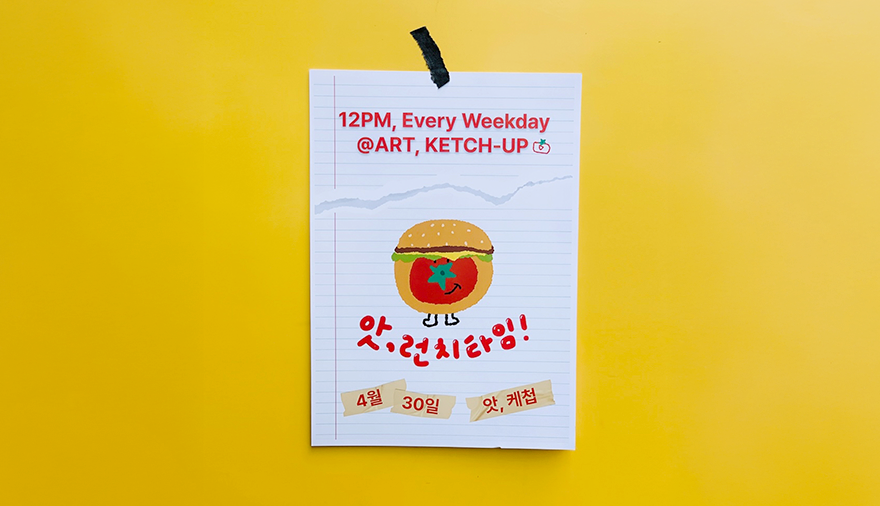 12PM, Every Weekday
@ART, KETCH-UP
앗, 런치타임!
4월 30일 앗, 케첩